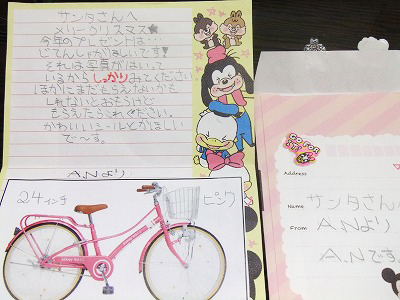 サンタさんへ
メリークリスマス
今年のプレゼントは…
じてんしゃがほしいです!
それは写真がはいって
いるからしっかりみてください
ほかにまだもらえないかも
しれないとおもうけど
もらえたらくれください。
かわいいシールとかほしい
で〜す。
A.Nより
24インチ
ピンク
GO FOR IT
Address
Name サンタさんへ
From A.Nより
A.Nです。